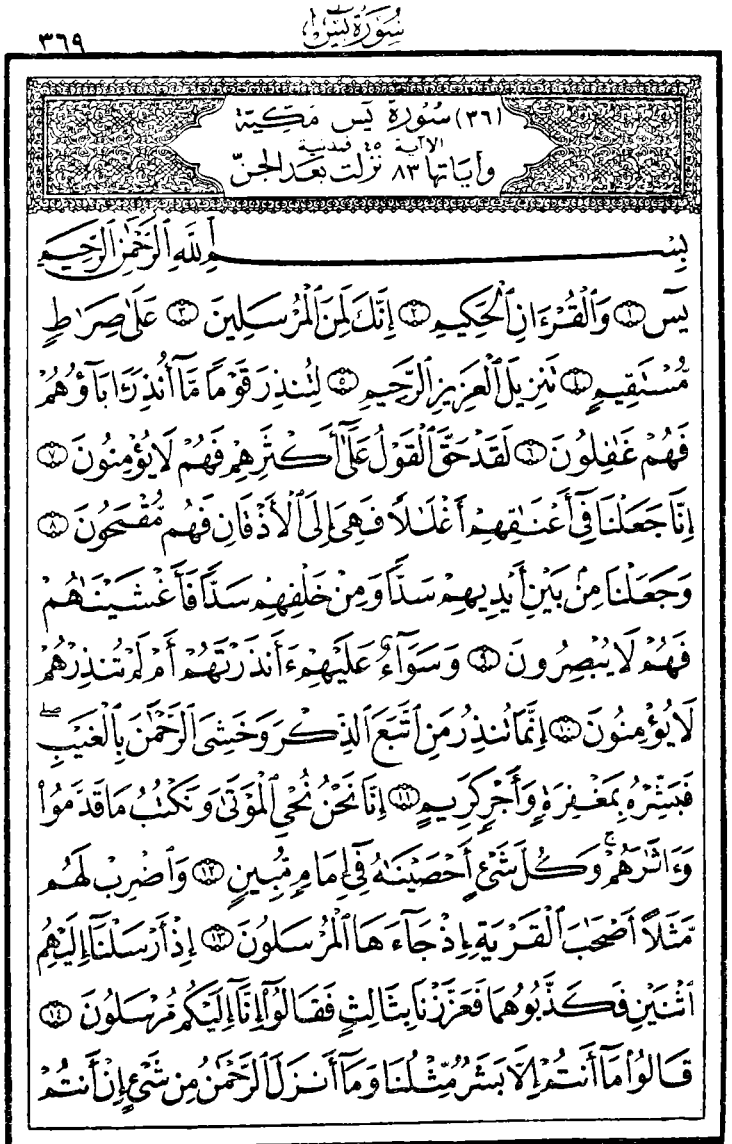 سُورَةُ يسٓ
٣٦٩
(٣٦) سُورَةِ يَس مَكِيَّة
الاآية ٤٥ فمدنية
وَآيَاتها ٨٣ نزَلت بَعدَ الجِنّ
بِسْمِ ٱللَّهِ ٱلرَّحْمَٰنِ ٱلرَّحِيمِ
يسٓ ١ وَٱلْقُرْءَانِ ٱلْحَكِيمِ ٢ إِنَّكَ لَمِنَ ٱلْمُرْسَلِينَ ٣ عَلَىٰ صِرَٰطٍ
مُّسْتَقِيمٍ ٤ تَنزِيلَ ٱلْعَزِيزِ ٱلرَّحِيمِ ٥ لِتُنذِرَ قَوْمًا مَّآ أُنذِرَ ءَابَآؤُهُمْ
فَهُمْ غَٰفِلُونَ ٦ لَقَدْ حَقَّ ٱلْقَوْلُ عَلَىٰٓ أَكْثَرِهِمْ فَهُمْ لَا يُؤْمِنُونَ ٧
إِنَّا جَعَلْنَا فِىٓ أَعْنَٰقِهِمْ أَغْلَٰلًا فَهِىَ إِلَى ٱلْأَذْقَانِ فَهُم مُّقْمَحُونَ ٨
وَجَعَلْنَا مِنۢ بَيْنِ أَيْدِيهِمْ سَدًّا وَمِنْ خَلْفِهِمْ سَدًّا فَأَغْشَيْنَٰهُمْ
فَهُمْ لَا يُبْصِرُونَ ٩ وَسَوَآءٌ عَلَيْهِمْ ءَأَنذَرْتَهُمْ أَمْ لَمْ تُنذِرْهُمْ
لَا يُؤْمِنُونَ ١٠ إِنَّمَا تُنذِرُ مَنِ ٱتَّبَعَ ٱلذِّكْرَ وَخَشِىَ ٱلرَّحْمَٰنَ بِٱلْغَيْبِ ۖ
فَبَشِّرْهُ بِمَغْفِرَةٍ وَأَجْرٍ كَرِيمٍ ١١ إِنَّا نَحْنُ نُحْىِ ٱلْمَوْتَىٰ وَنَكْتُبُ مَا قَدَّمُوا۟
وَءَاثَٰرَهُمْ ۚ وَكُلَّ شَىْءٍ أَحْصَيْنَٰهُ فِىٓ إِمَامٍ مُّبِينٍ ١٢ وَٱضْرِبْ لَهُم
مَّثَلًا أَصْحَٰبَ ٱلْقَرْيَةِ إِذْ جَآءَهَا ٱلْمُرْسَلُونَ ١٣ إِذْ أَرْسَلْنَآ إِلَيْهِمُ
ٱثْنَيْنِ فَكَذَّبُوهُمَا فَعَزَّزْنَا بِثَالِثٍ فَقَالُوٓا۟ إِنَّآ إِلَيْكُم مُّرْسَلُونَ ١٤
قَالُوا۟ مَآ أَنتُمْ إِلَّا بَشَرٌ مِّثْلُنَا وَمَآ أَنزَلَ ٱلرَّحْمَٰنُ مِن شَىْءٍ إِنْ أَنتُمْ